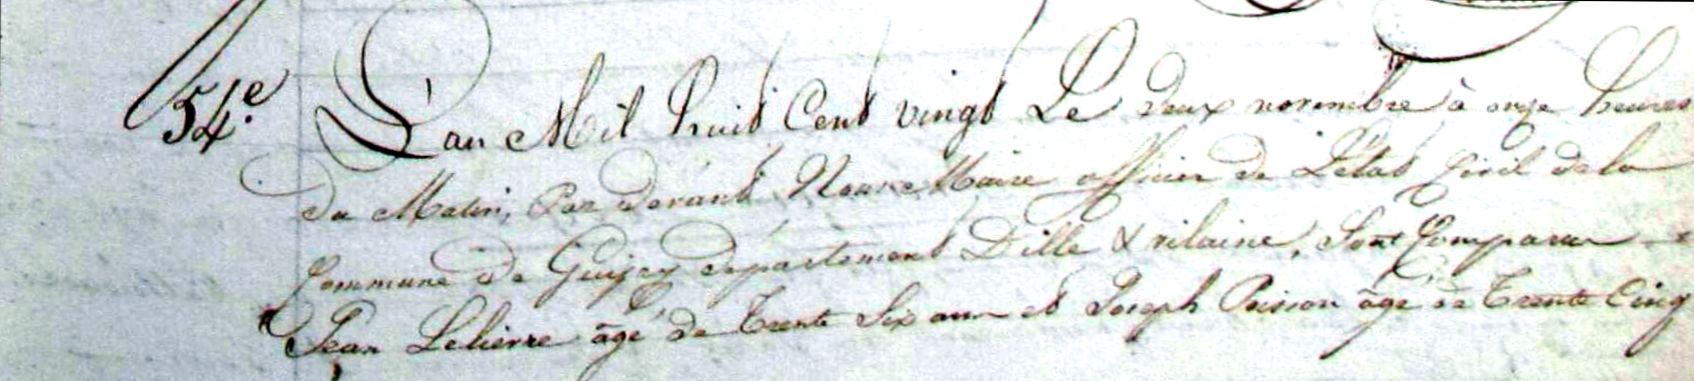 54.e L'an Mil huit Cent vingt Le deux novembre à onze heures
du Matin, Par devant Nous Maire officier de L'état Civil de la
Commune de Guipry département D'ille & vilaine, Sont Comparus
Jean Lelievre âgé de Trente Six ans et Joseph Poisson âgé de Trente Cinq